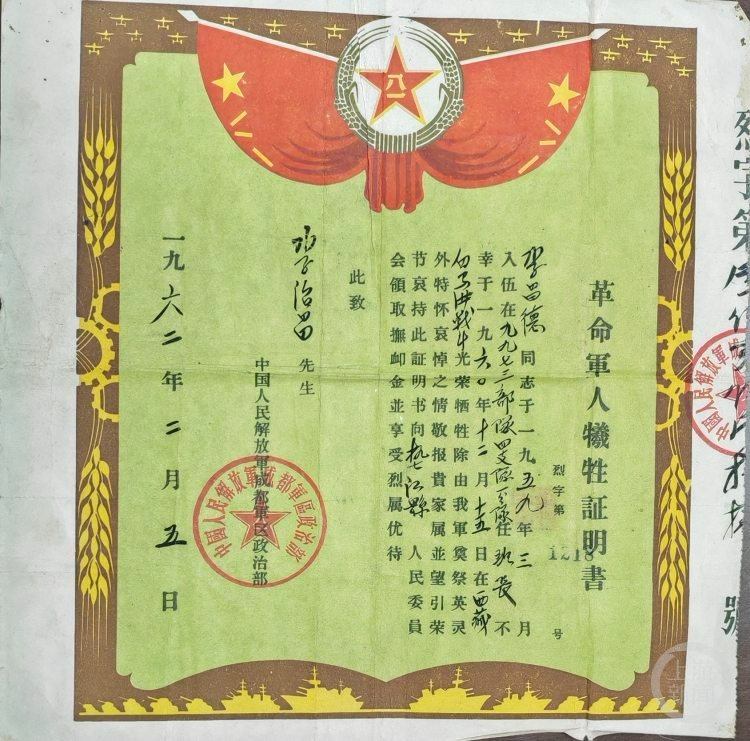 革命軍人犧牲証明書
烈字第 1218 号
李昌德同志于一九五九年三月
入伍在九九七三部隊四支隊 隊任班長不
幸于一九六〇年十二月十五日在西藏
战斗光荣牺牲除由我軍奠祭英灵
外特怀哀悼之情敬报貴家属並望引荣
节哀持此証明书向 江縣人民委員
会領取撫卹金並享受烈属优待
此致
李治富先生
中国人民解放軍成都軍区政治部
一九六二年二月五日
中國人民解放軍成都軍區政治部
八一
八一
八一
烈字第 號
中國人民解放軍成
上游新聞